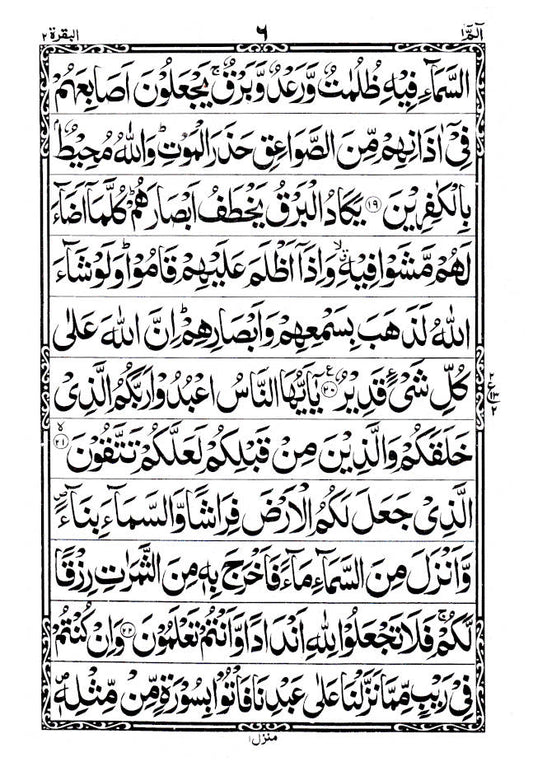 الٓمّٓ ١ ٦ البقرة ٢
السَّمَآءِ فِيْهِ ظُلُمٰتٌ وَّرَعْدٌ وَّبَرْقٌ ۚ يَجْعَلُوْنَ اَصَابِعَهُمْ
فِيْٓ اٰذَانِهِمْ مِّنَ الصَّوَاعِقِ حَذَرَ الْمَوْتِ ؕ وَاللّٰهُ مُحِيْطٌۢ
بِالْكٰفِرِيْنَ ١٩ يَكَادُ الْبَرْقُ يَخْطَفُ اَبْصَارَهُمْ ؕ كُلَّمَآ اَضَآءَ
لَهُمْ مَّشَوْا فِيْهِ ۙ وَاِذَآ اَظْلَمَ عَلَيْهِمْ قَامُوْا ؕ وَلَوْ شَآءَ
اللّٰهُ لَذَهَبَ بِسَمْعِهِمْ وَاَبْصَارِهِمْ ؕ اِنَّ اللّٰهَ عَلٰى
كُلِّ شَيْءٍ قَدِيْرٌ ٢٠ ع يٰٓاَيُّهَا النَّاسُ اعْبُدُوْا رَبَّكُمُ الَّذِيْ
خَلَقَكُمْ وَالَّذِيْنَ مِنْ قَبْلِكُمْ لَعَلَّكُمْ تَتَّقُوْنَ ٢١ ۙ
الَّذِيْ جَعَلَ لَكُمُ الْاَرْضَ فِرَاشًا وَّالسَّمَآءَ بِنَآءً ۪
وَّاَنْزَلَ مِنَ السَّمَآءِ مَآءً فَاَخْرَجَ بِهٖ مِنَ الثَّمَرٰتِ رِزْقًا
لَّكُمْ ۚ فَلَا تَجْعَلُوْا لِلّٰهِ اَنْدَادًا وَّاَنْتُمْ تَعْلَمُوْنَ ٢٢ وَاِنْ كُنْتُمْ
فِيْ رَيْبٍ مِّمَّا نَزَّلْنَا عَلٰى عَبْدِنَا فَاْتُوْا بِسُوْرَةٍ مِّنْ مِّثْلِهٖ ۪
٢
ع ١٣
٢
منزل ١